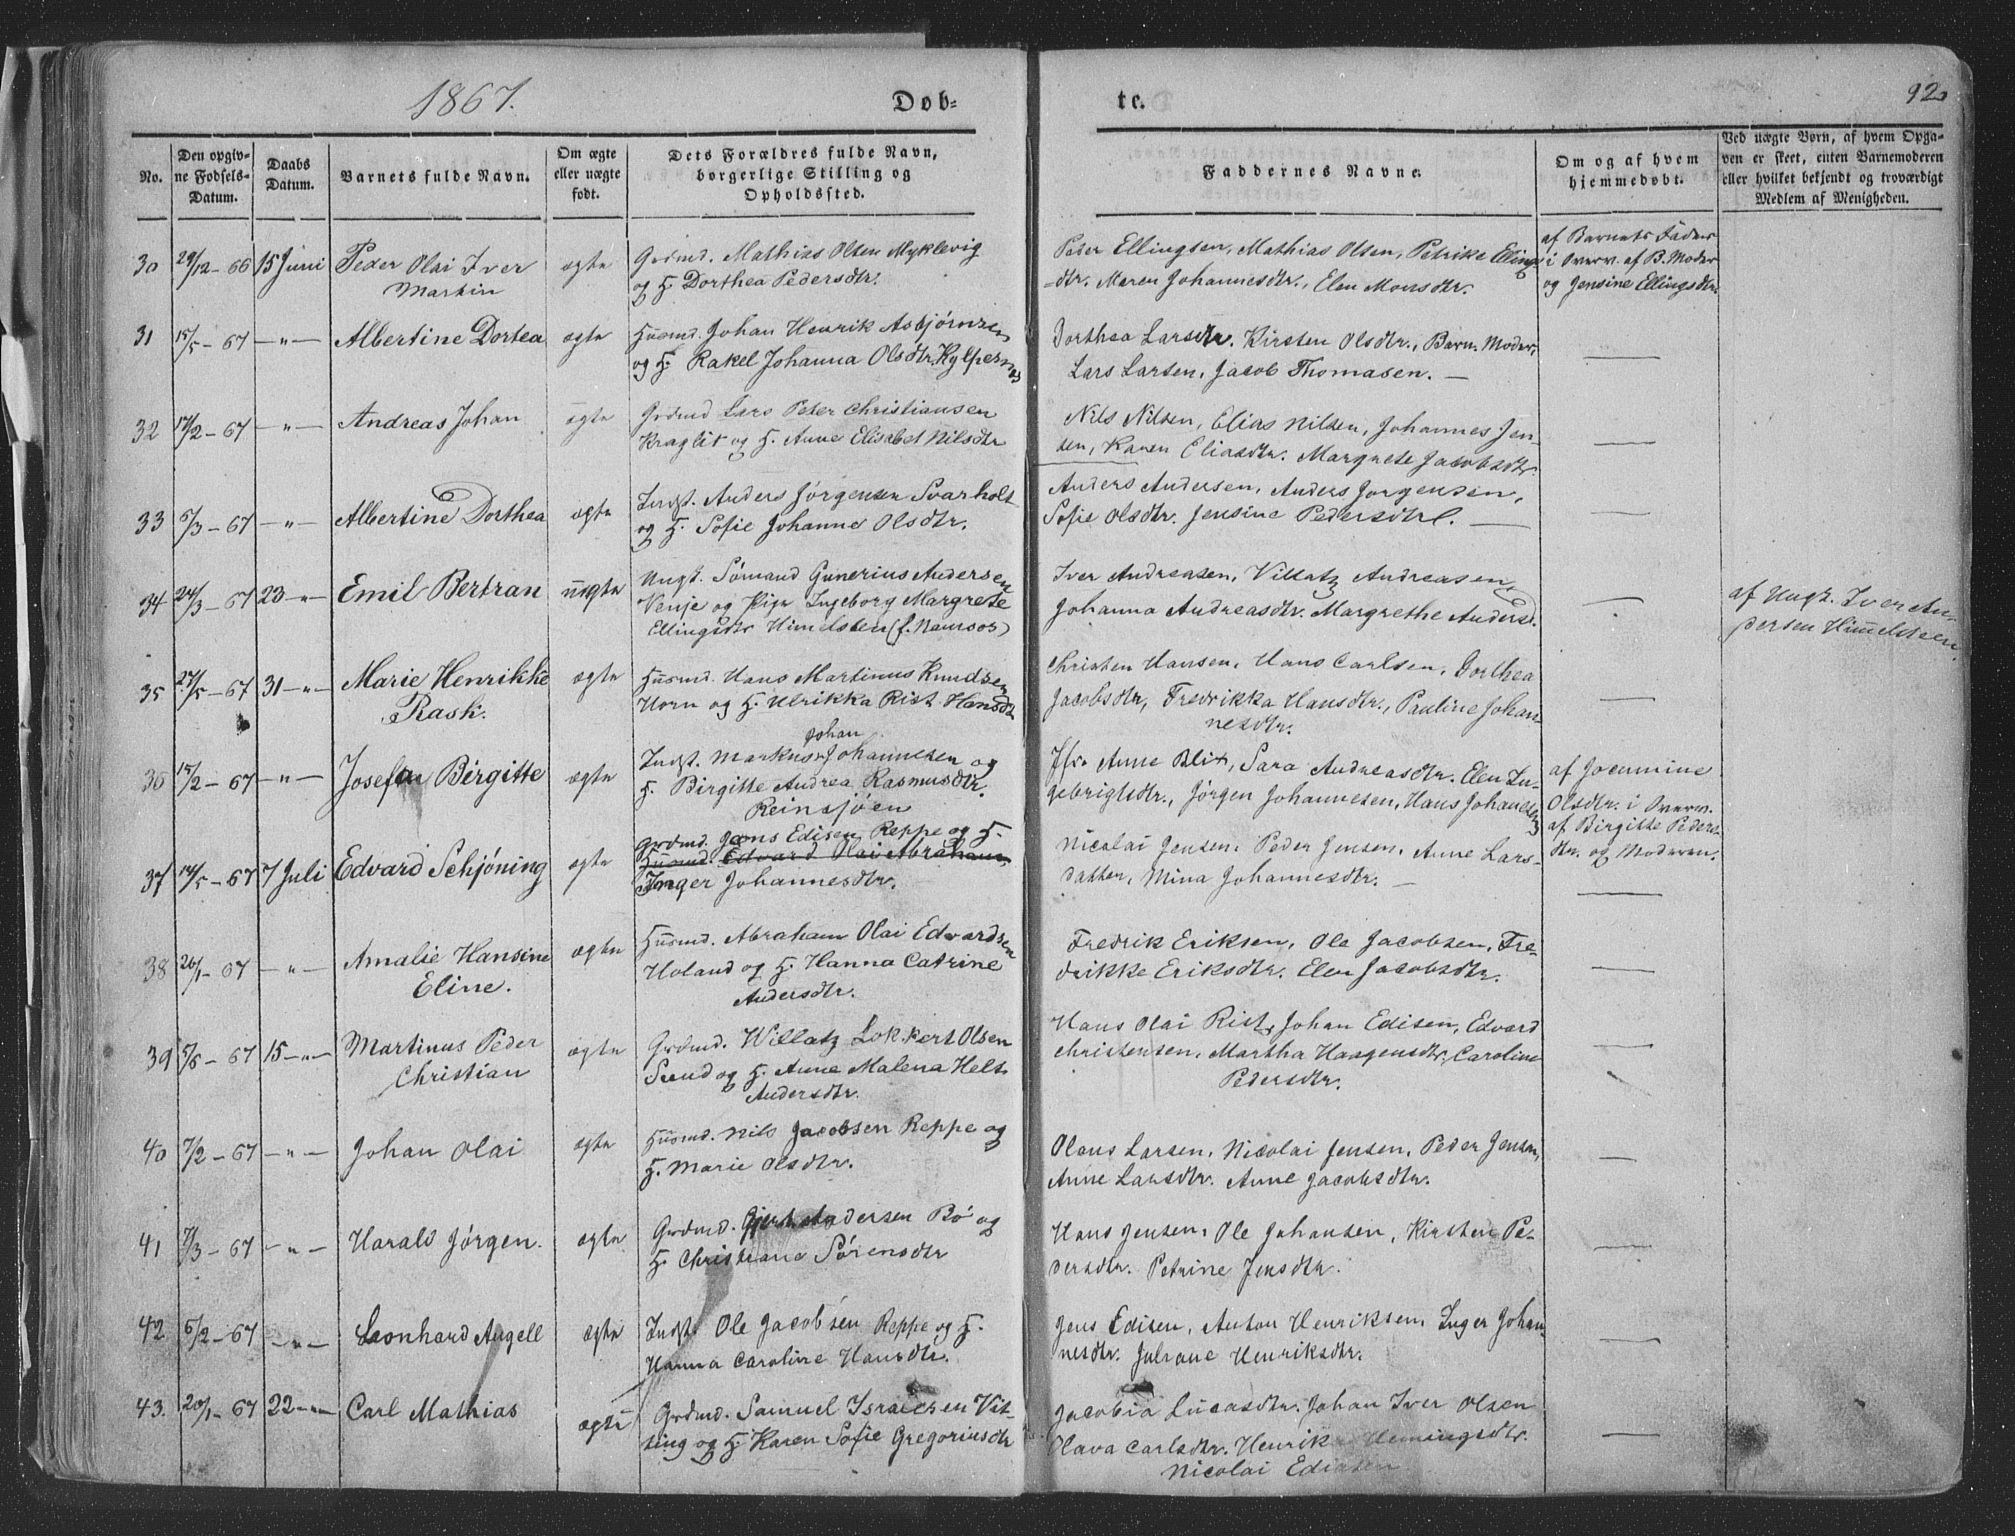 1867.
Døb-
te.
92
No.
Den opgivne Fødsels-Datum.
Daabs Datum.
Barnets fulde Navn.
Om ægte eller uægte født.
Dets Forældres fulde Navn, borgerlige Stilling og Opholdssted.
Faddernes Navne.
Om og af hvem hjemmedøbt.
Ved uægte Børn, af hvem Opgaven er skeet, enten Barnemoderen eller hvilket bekjendt og troværdigt Medlem af Menigheden.
30 29/12-66 15 Juni Peder Olai Iver ægte Grdmd. Mathias Olsen Myklevig Peter Ellingsen, Mathias Olsen, Petrike Ellings af Barnets Fader
Martin og H. Dorthea Pedersdtr. =dtr. Maren Johannesdtr., Elen Monsdtr. i Overv. af B. Moder
og Jensine Ellingsdtr.
31 15/5-67 —"— Albertine Dortea ægte Husmd. Johan Henrik Asbjørnsen Dorthea Larsdtr. Kirsten Olsdtr., Barn. Moder,
og H. Rakel Johanna Olsdtr. Kylpesnes Lars Larsen, Jacob Thomasen. —
32 17/2-67 —"— Andreas Johan ægte Grdmd Lars Peter Christiansen Nils Nilsen, Elias Nilsen, Johannes Jen-
Kraglit og H. Anne Elisabet Nilsdtr sen, Karen Eliasdtr. Margrete Jacobsdtr
33 5/3-67 —"— Albertine Dorthea ægte Indst. Anders Jørgensen Svarholt Anders Andersen, Anders Jørgensen,
og H. Sofie Johanne Olsdtr. Sofie Olsdtr. Jensine Pedersdtr. —
34 24/3-67 23 —"— Emil Bertran uægte Ungk. Sømand Gunerius Andersen Iver Andreasen, Villatz Andreasen,
Venje og Pige Ingeborg Margrete Johanna Andreasdtr. Margrethe Andersd. af Ungk. Iver An-
Ellingsdtr Himelsten (f. Namsos) dersen Himmelsteen.
35 27/5-67 31 —"— Marie Henrikke ægte Husmd. Hans Martinus Knudsen Christen Hansen, Hans Carlsen, Dorthea
Rask. Horn og H. Ulrikka Rist Hansdtr Jacobsdtr, Fredrikka Hansdtr., Pauline Johan
nesdtr.
Johan
36 15/2-67 —"— Josefa Birgitte ægte Indst. Markus Johannesen og Jfr. Anne Blix, Sara Andreasdtr. Elen In- af Jocumine
H. Birgitte Andrea Rasmusdtr. gebrigtsdtr., Jørgen Johannesen, Hans Johannesen Olsdtr. i Overv.
Reinsjøen af Birgitte Peders-
dtr. og Moderen.
37 14/5-67 7 Juli Edvard Schjøning ægte Grdmd. Jens Edisen Reppe og H. Nicolai Jensen, Peder Jensen, Anne Lars-
Husmd. Edvard Olai Abraham
Inger Johannesdtr. datter, Mina Johannesdtr. —
38 26/1-67 —"— Amalie Hansine ægte Husmd. Abraham Olai Edvardsen Fredrik Eriksen, Ole Jacobsen, Fre-
Eline. Holand og H. Hanna Catrine drikke Eriksdtr. Elen Jacobsdtr.
Andersdtr.
39 5/6-67 15 —"— Martinus Peder ægte Grdmd. Willatz Lokkert Olsen Hans Olai Rist, Johan Edisen, Edvard
Christian Sund og H. Anne Malena Helt Christensen, Martha Haagensdtr, Caroline
Andersdtr. Pedersdtr.
40 7/2-67 —"— Johan Olai ægte Husmd. Nils Jacobsen Reppe og Olaus Larsen, Nicolai Jensen, Peder Jensen,
H. Marie Olsdtr. Anne Larsdtr. Anne Jacobsdtr.
41 7/3-67 —"— Harald Jørgen. ægte Grdmd. Gjert Andersen Bø og Hans Jensen, Ole Johansen, Kirsten Pe-
H. Christiane Sørensdtr dersdtr. Petrine Jensdtr.
42 6/2-67 —"— Leonhard Angell ægte Indst. Ole Jacobsen Reppe og H. Jens Edisen, Anton Henriksen, Inger Johan-
Hanna Caroline Hansdtr. nesdtr. Juliane Henriksdtr.
43. 20/1-67 22 —"— Carl Mathias ægte Grdmd. Samuel Israelsen Vit- Jacobia Lucasdtr. Johan Iver Olsen
ting og H. Karen Sofie Gregoriusdtr Olava Carlsdtr. Henrik Hemingsdtr.
Nicolai Ediasen